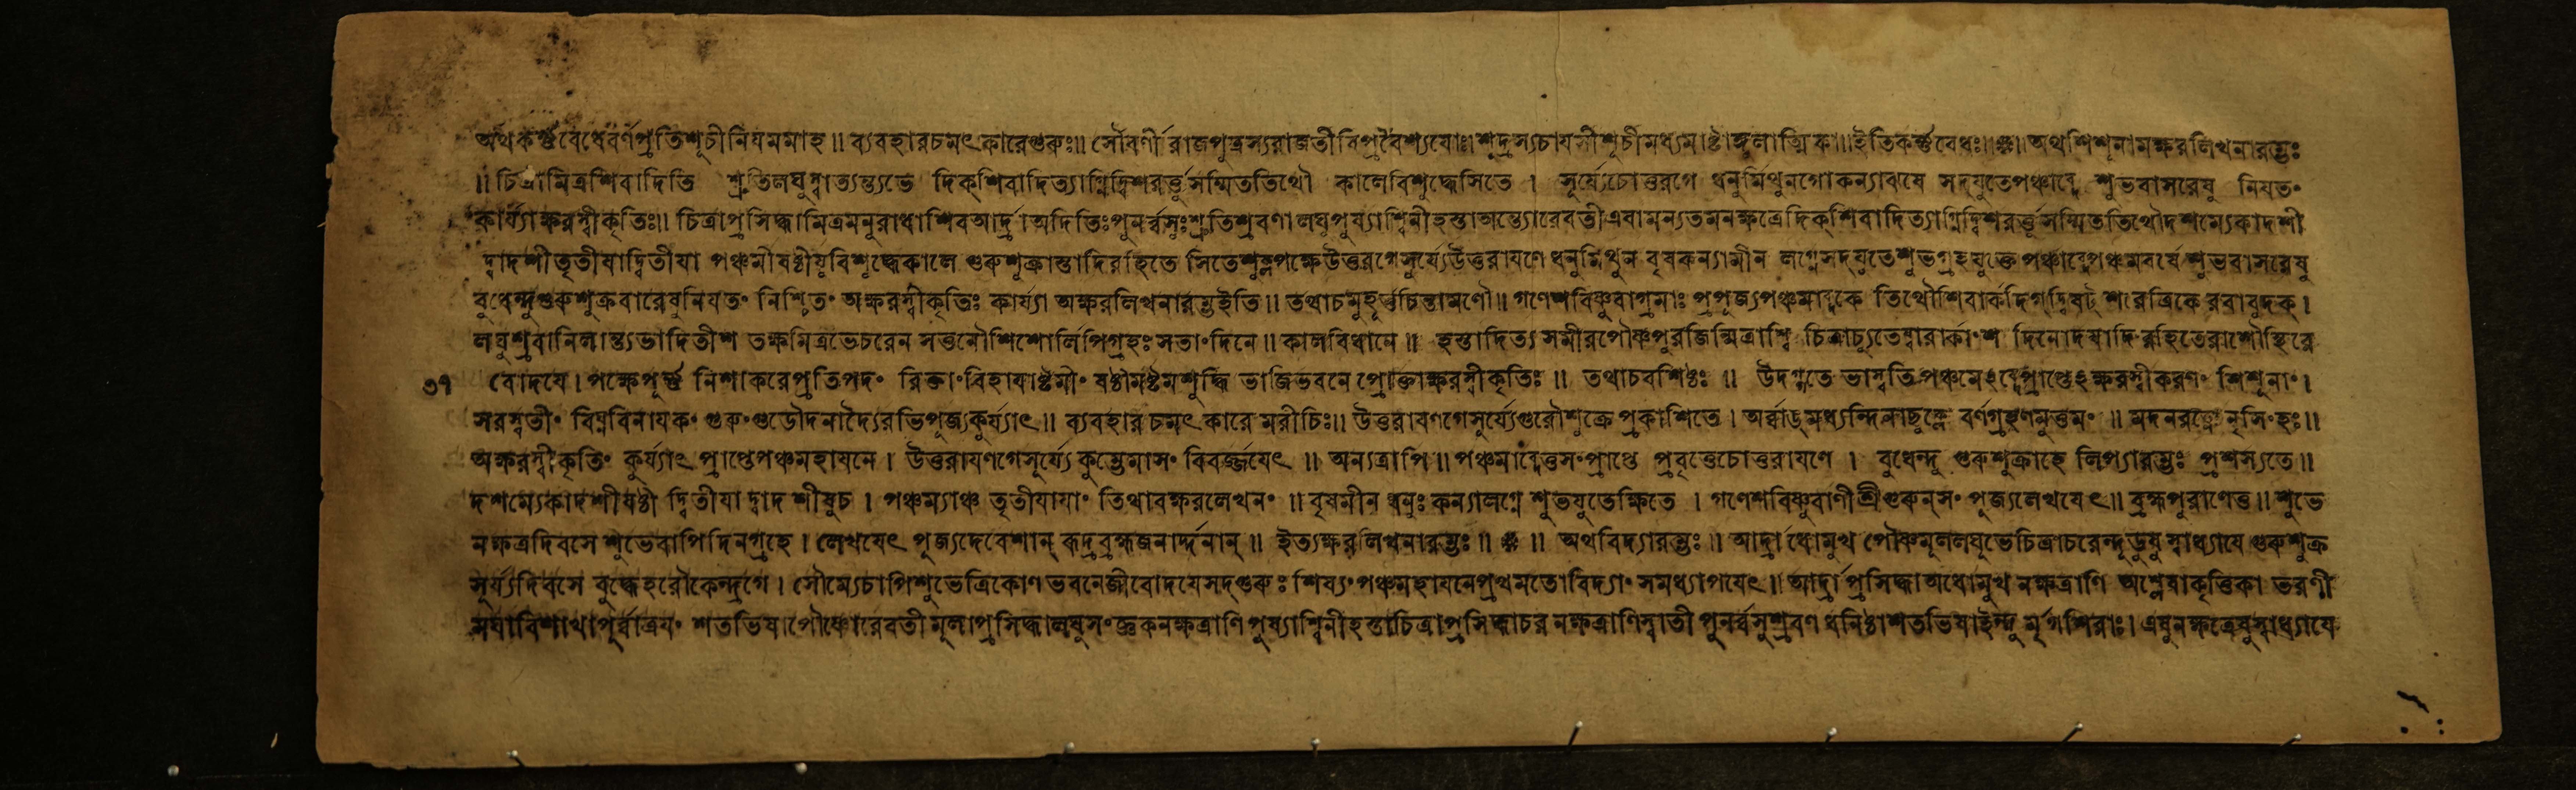 অথকর্ণ্ণবেধেবর্ণপ্রতিশূচীনিযমমাহ॥ ব্যবহারচমৎকারেগুরুঃ॥ সৌবর্ণীরাজপুত্রস্যরাজতীবিপ্রবৈশ্যযোঃ।শূদ্রস্যচাযসীশূচীমধ্যমাষ্টাঙ্গুলাত্মিকা॥ইতিকর্ণ্ণবেধঃ॥ ॥অথশিশূনামক্ষরলিখনারম্ভঃ
॥চিত্রামিত্রশিবাদিতি শ্রুতিলঘুস্বাত্যন্ত্যভে দিক্শিবাদিত্যাগ্নিদ্বিশরর্ত্তুসম্মিততিথৌ কালেবিশুদ্ধেসিতে। সূর্য্যেচোত্তরগে ধনুর্মিথুনগোকন্যাঝষে সদ্যুতেপঞ্চাব্দে শুভবাসরেষু নিযতং
কার্য্যাক্ষরস্বীকৃতিঃ॥ চিত্রাপ্রসিদ্ধামিত্রমনুরাধাশিবআর্দ্রাঅদিতিঃপুনর্ব্বসুঃশ্রুতিশ্রবণালঘুপুষ্যাশ্বিনীহস্তাঅন্ত্যোরেবতীএষামন্যতমনক্ষত্রেদিক্শিবাদিত্যাগ্নিদ্বিশরর্ত্তুসম্মিততিথৌদশম্যেকাদশী
দ্বাদশীতৃতীযাদ্বিতীযা পঞ্চমীষষ্ঠীষুবিশুদ্ধেকালে গুরুশুক্রাস্তাদিরহিতে সিতেশুক্লপক্ষেউত্তরগেসূর্য্যেউত্তরাযণে ধনুমিথুন বৃষকন্যামীন লগ্নেসদ্যুতেশুভগ্রহযুক্তে পঞ্চাব্দেপঞ্চমবর্ষে শুভবাসরেষু
বুধেন্দুগুরুশুক্রবারেষুনিযতং নিশ্চিতং অক্ষরস্বীকৃতিঃ কার্য্যা অক্ষরলিখনারম্ভইতি॥ তথাচমুহূর্ত্তচিন্তামণৌ॥ গণেশবিষ্ণুবাগ্রমাঃ প্রপূজ্যপঞ্চমাব্দকে তিথৌশিবার্কদিগ্দ্বিষট্ শরেত্রিকে রবাবুদক্।
লঘুশ্রবোনিলান্ত্যভাদিতীশ তক্ষমিত্রভেচরেন সত্তনৌশিশোর্লিপিগ্রহঃ সতাংদিনে॥ কালবিধানে॥ হস্তাদিত্য সমীরপৌষ্ণপুরজিন্মিত্রাশ্বি চিত্রাচ্যুতেষ্বারার্কাংশ দিনোদযাদিরহিতেরাশৌস্থিরে
৩৭ বোদযে। পক্ষেপূর্ণ্ণ নিশাকরেপ্রতিপদং রিক্তাংবিহাযাষ্টমীং ষষ্ঠীমষ্টমশুদ্ধি ভাজিভবনে প্রোক্তাক্ষরস্বীকৃতিঃ॥ তথাচবশিষ্ঠঃ॥ উদগ্গতে ভাস্বতিপঞ্চমেঽব্দেপ্রাপ্তেঽক্ষরস্বীকরণং শিশূনাং।
সরস্বতীং বিঘ্নবিনাযকং গুরুংগুডৌদনাদ্যৈরভিপূজ্যকুর্য্যাৎ॥ ব্যবহারচমৎকারে মরীচিঃ॥ উত্তরাযণগেসূর্য্যেগুরৌশুক্রে প্রকাশিতে। অর্ব্বাঙ্মধ্যন্দিনাচ্ছুক্লে বর্ণগ্রহণমুত্তমং॥ মদনরত্নে নৃসিংহঃ॥
অক্ষরস্বীকৃতিং কুর্য্যাৎ প্রাপ্তেপঞ্চমহাযনে। উত্তরাযণগেসূর্য্যে কুম্ভেমাসং বিবর্জ্জযেৎ॥ অন্যত্রাপি॥ পঞ্চমাব্দেত্তসংপ্রাপ্তে প্রবৃত্তেচোত্তরাযণে। বুধেন্দু গুরুশুক্রাহে লিপ্যারম্ভঃ প্রশস্যতে॥
দশম্যেকাদশীষষ্ঠী দ্বিতীযাদ্বাদশীষুচ। পঞ্চম্যাঞ্চ তৃতীযাযাং তিথাবক্ষরলেখনং॥ বৃষমীন ধনুঃকন্যালগ্নে শুভযুতেক্ষিতে। গণেশবিষ্ণুবাণীশ্রীগুরুন্সং পূজ্যলেখযেৎ॥ ব্রহ্মপুরাণেত্ত॥ শুভে
নক্ষত্রদিবসে শুভেবাপিদিনগ্রহে। লেখযেৎ পূজ্যদেবেশান্ রুদ্রব্রহ্মজনার্দ্দনান্॥ ইত্যক্ষরলিখনারম্ভঃ॥ ॥ অথবিদ্যারম্ভঃ॥ আর্দ্রাধোমুখ পৌষ্ণমূললঘুভেচিত্রাচরেন্দূডুষু স্বাধ্যাযে গুরুশুক্র
সূর্য্যদিবসে বুদ্ধেহরৌকেন্দ্রগে। সৌম্যেচাপিশুভেত্রিকোণভবনেজীবোদযেসদ্গুরুঃ শিষ্যংপঞ্চমহাযনেপ্রথমতোবিদ্যাংসমধ্যাপযেৎ॥ আর্দ্রাপ্রসিদ্ধাঅধোমুখ নক্ষত্রাণি অশ্লেষাকৃত্তিকা ভরণী
মঘাবিশাখাপূর্বাত্রযং শতভিষা।পৌষ্ণোরেবতী মূলাপ্রসিদ্ধালঘুসংজ্ঞকনক্ষত্রাণিপুষ্যাশ্বিনীহস্তাচিত্রাপ্রসিদ্ধাচর নক্ষত্রাণিস্বাতী পুনর্ব্বসুশ্রবণ ধনিষ্ঠাশতভিষাইন্দু মৃর্গশিরাঃ। এষুনক্ষত্রেষুস্বাধ্যাযে